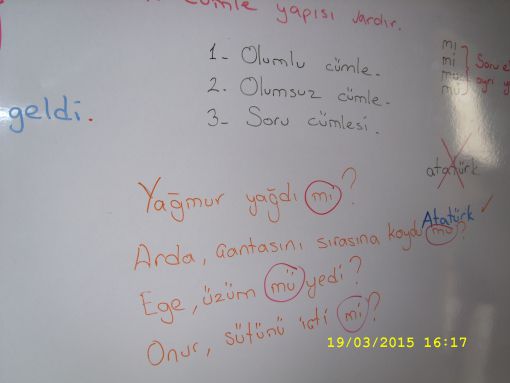 cümle yapısı vardır.
1- Olumlu cümle.
2. Olumsuz cümle.
3- Soru cümlesi.
geldi.
mı
mi
mu
mü
Soru e
ayrı y
atatürk
Atatürk
Yağmur yağdı mı?
Arda, çantasını sırasına koydu mu?
Ege, üzüm mü yedi?
Onur, sütünü içti mi?
19/03/2015 16:17